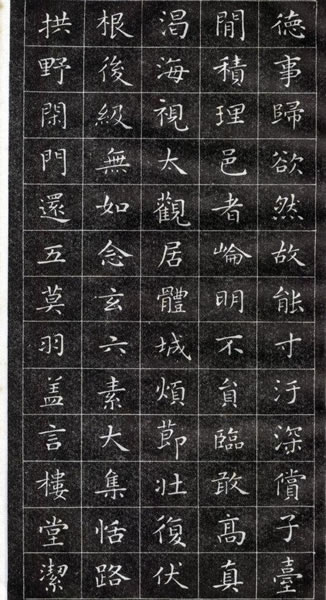 德事歸欲然故能寸汙深償子臺
閒積理邑者崘明不貟臨敢高真
渴海視太觀居體城煩節壯復伏
根後級無如念玄六素大集恬路
拱野閑門還五莫羽盖言樓堂潔